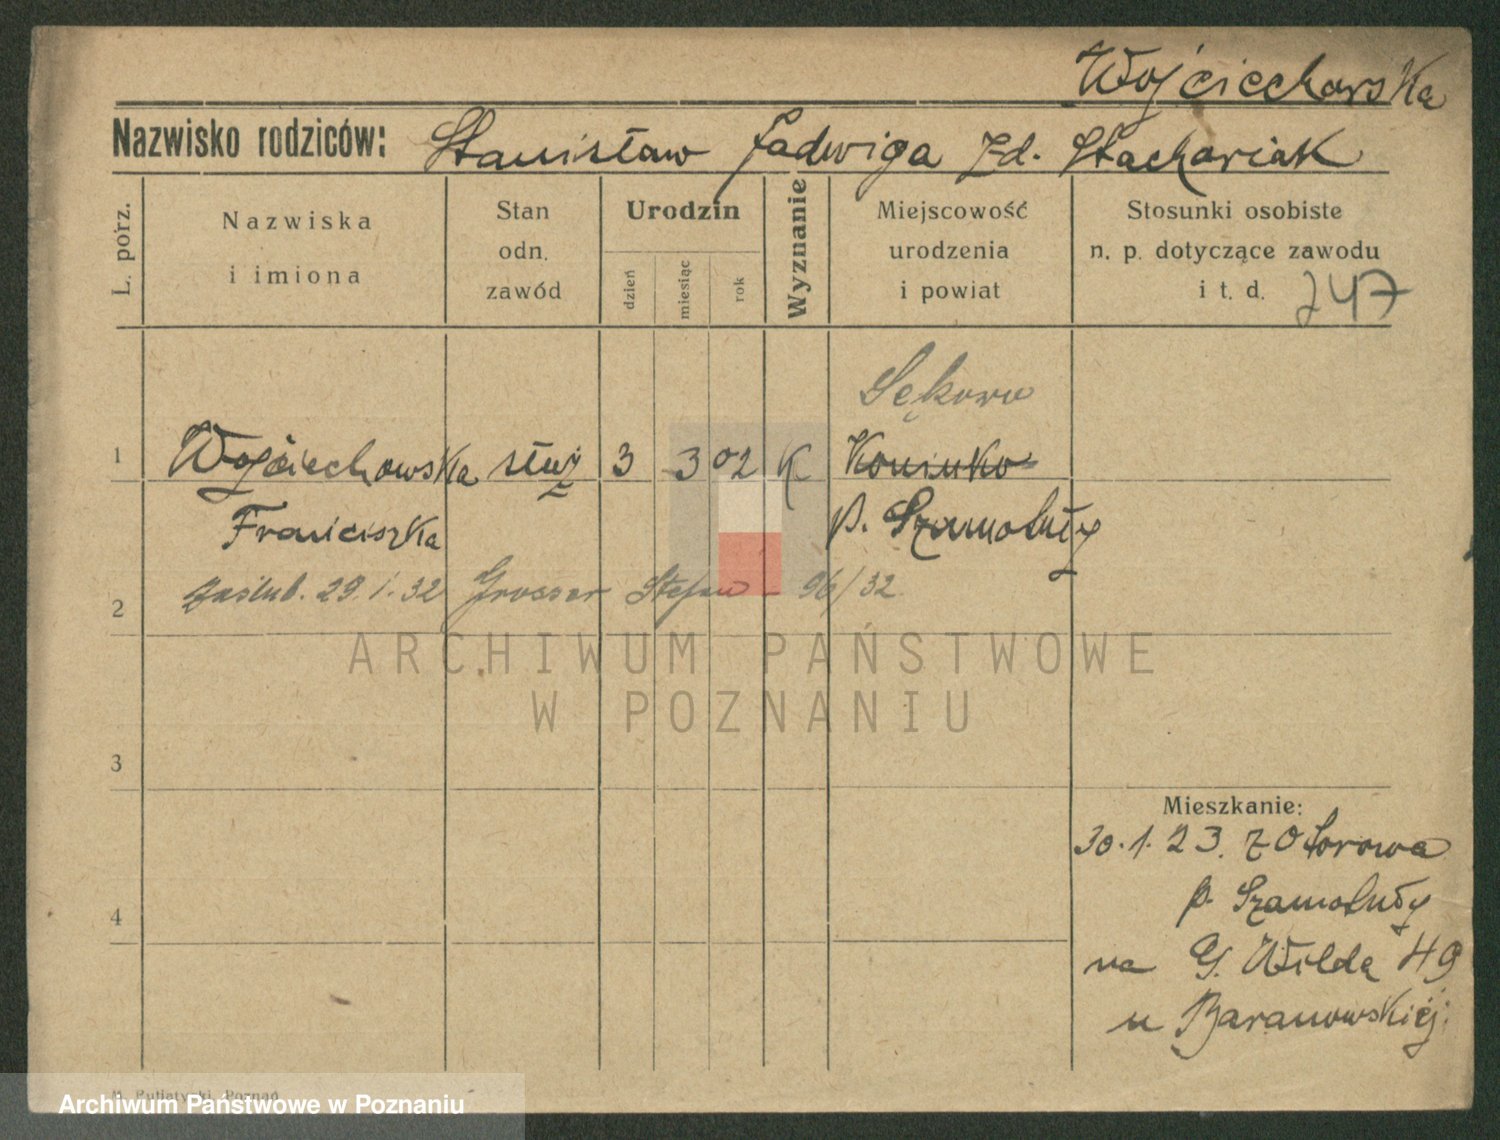 Wojciechowska
Nazwisko rodziców: Stanisław Jadwiga zd. Stachowiak
L. porz.
Nazwiska
i imiona
Stan
odn.
zawód
Urodzin
dzień
miesiąc
rok
Wyznanie
Miejscowość
urodzenia
i powiat
Stosunki osobiste
n. p. dotyczące zawodu
i t. d. 247
Sękowo
1 Wojciechowska służ 3 3 02 K Koninko
Franciszka p. Szamotuły
2 zaślub. 29.1.32 Grosser Stefan - 96/32
ARCHIWUM PAŃSTWOWE
W POZNANIU
3
Mieszkanie:
30.1.23. z Otorowa
p. Szamotuły
4
na G. Wilda 49
u Baranowskiej
Poznań
Archiwum Państwowe w Poznaniu